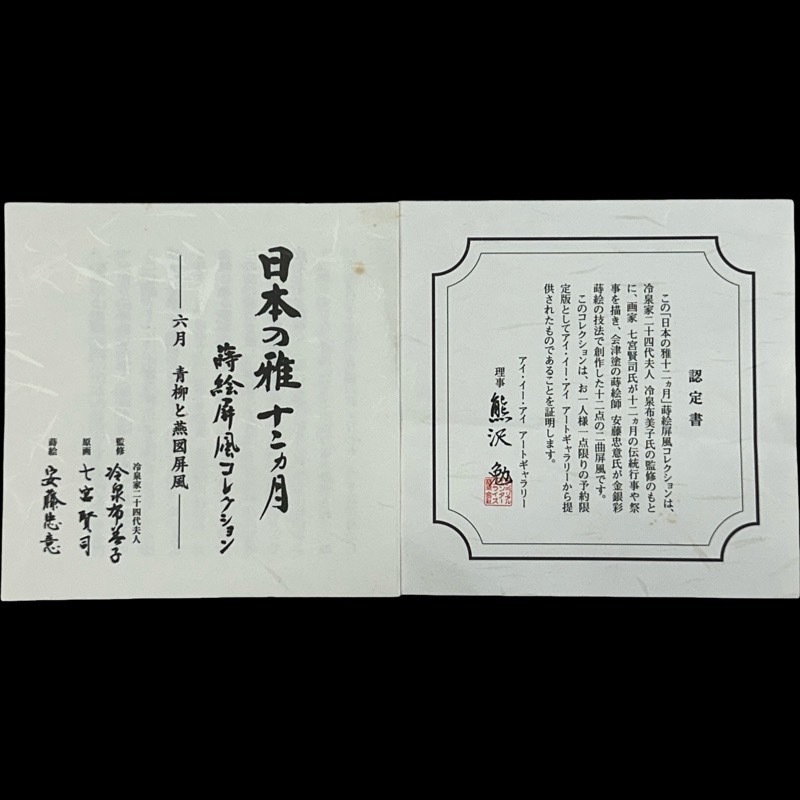 認定書
この「日本の雅十二ヵ月」蒔絵屏風コレクションは、
冷泉家二十四代夫人 冷泉布美子氏の監修のもと
に、画家 七宮賢司氏が十二ヵ月の伝統行事や祭
事を描き、会津塗の蒔絵師 安藤忠意氏が金銀彩
蒔絵の技法で創作した十二点の二曲屏風です。
このコレクションは、お一人様一点限りの予約限
定版としてアイ・イー・アイ アートギャラリーから提
供されたものであることを証明します。
アイ・イー・アイ アートギャラリー
理事 熊沢 勉
日本の雅 十二ヵ月
蒔絵屏風コレクション
六月 青柳と燕図屏風
冷泉家二十四代夫人
監修 冷泉布美子
原画 七宮賢司
蒔絵 安藤忠意